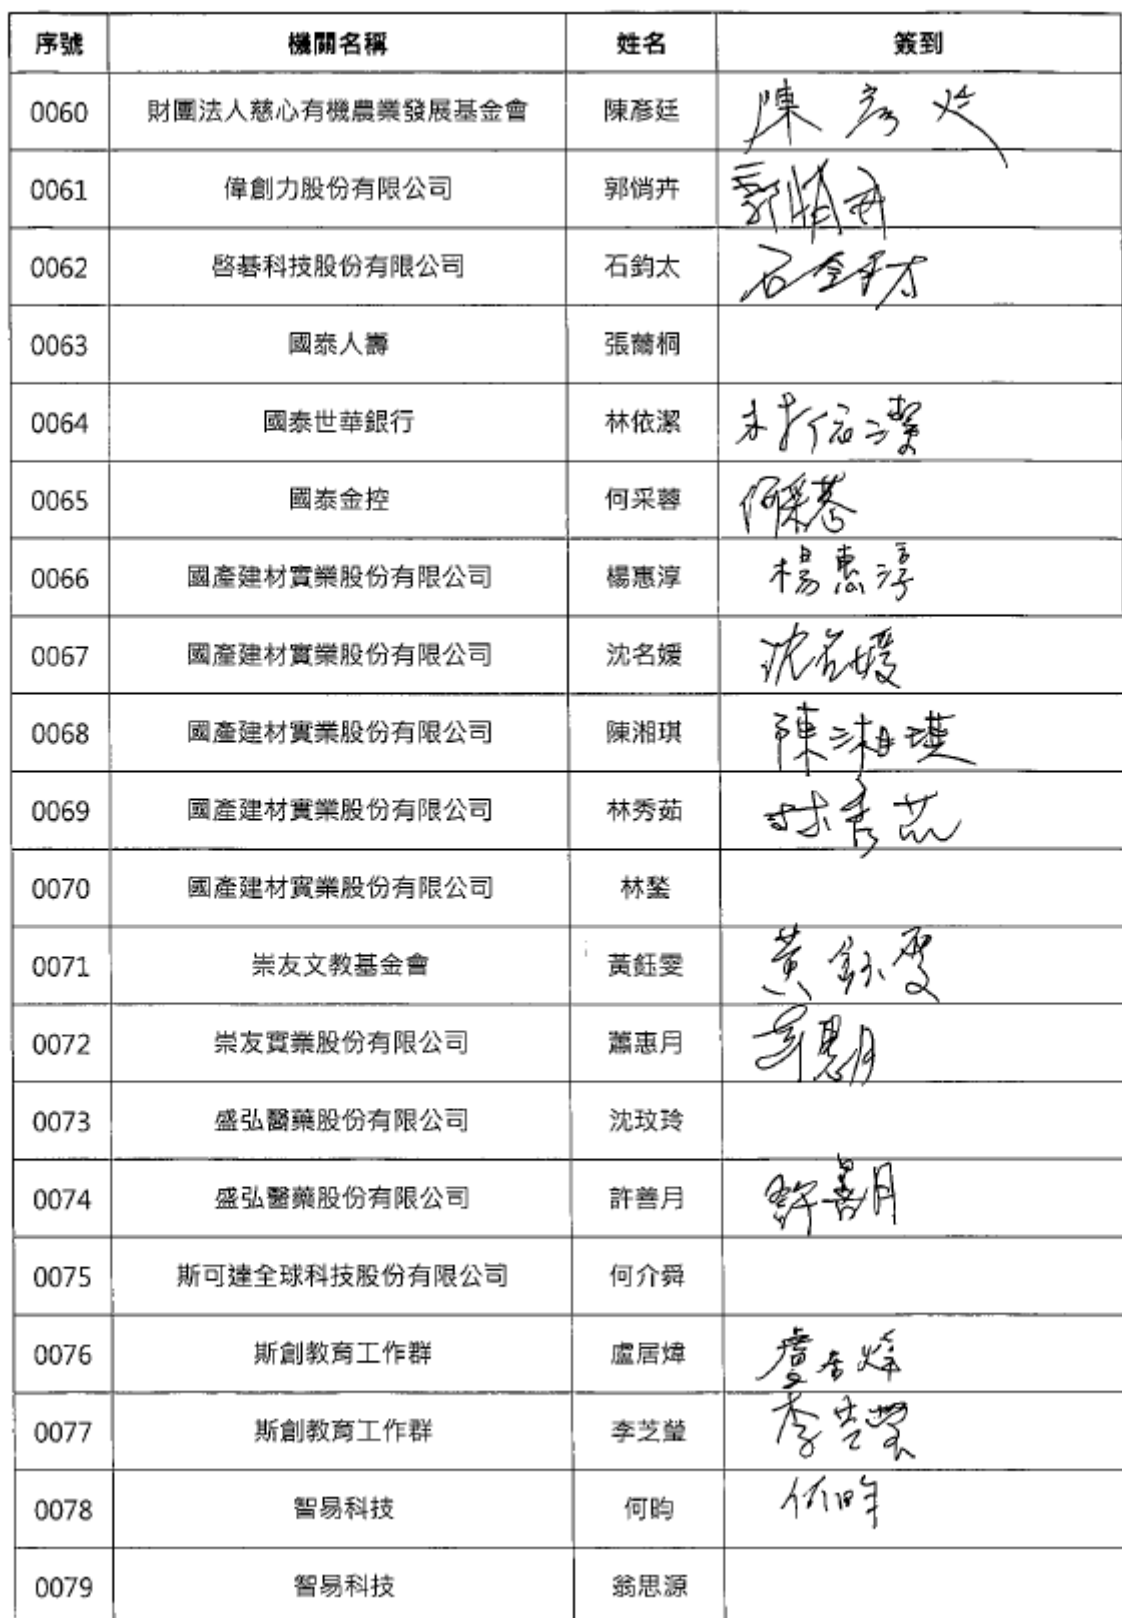 序號 機關名稱 姓名 簽到
0060 財團法人慈心有機農業發展基金會 陳彥廷 陳彥廷
0061 偉創力股份有限公司 郭悄卉 郭悄卉
0062 啓碁科技股份有限公司 石鈞太 石鈞太
0063 國泰人壽 張薾桐
0064 國泰世華銀行 林依潔 林依潔
0065 國泰金控 何采蓉 何采蓉
0066 國產建材實業股份有限公司 楊惠淳 楊惠淳
0067 國產建材實業股份有限公司 沈名媛 沈名媛
0068 國產建材實業股份有限公司 陳湘琪 陳湘琪
0069 國產建材實業股份有限公司 林秀茹 林秀茹
0070 國產建材實業股份有限公司
0071 崇友文教基金會 黃鈺雯 黃鈺雯
0072 崇友實業股份有限公司 蕭惠月 蕭惠月
0073 盛弘醫藥股份有限公司 沈玟玲
0074 盛弘醫藥股份有限公司 許善月 許善月
0075 斯可達全球科技股份有限公司 何介舜
0076 斯創教育工作群 盧居煒 盧居煒
0077 斯創教育工作群 李芝瑩 李芝瑩
0078 智易科技 何昀 何昀
0079 智易科技 翁思源